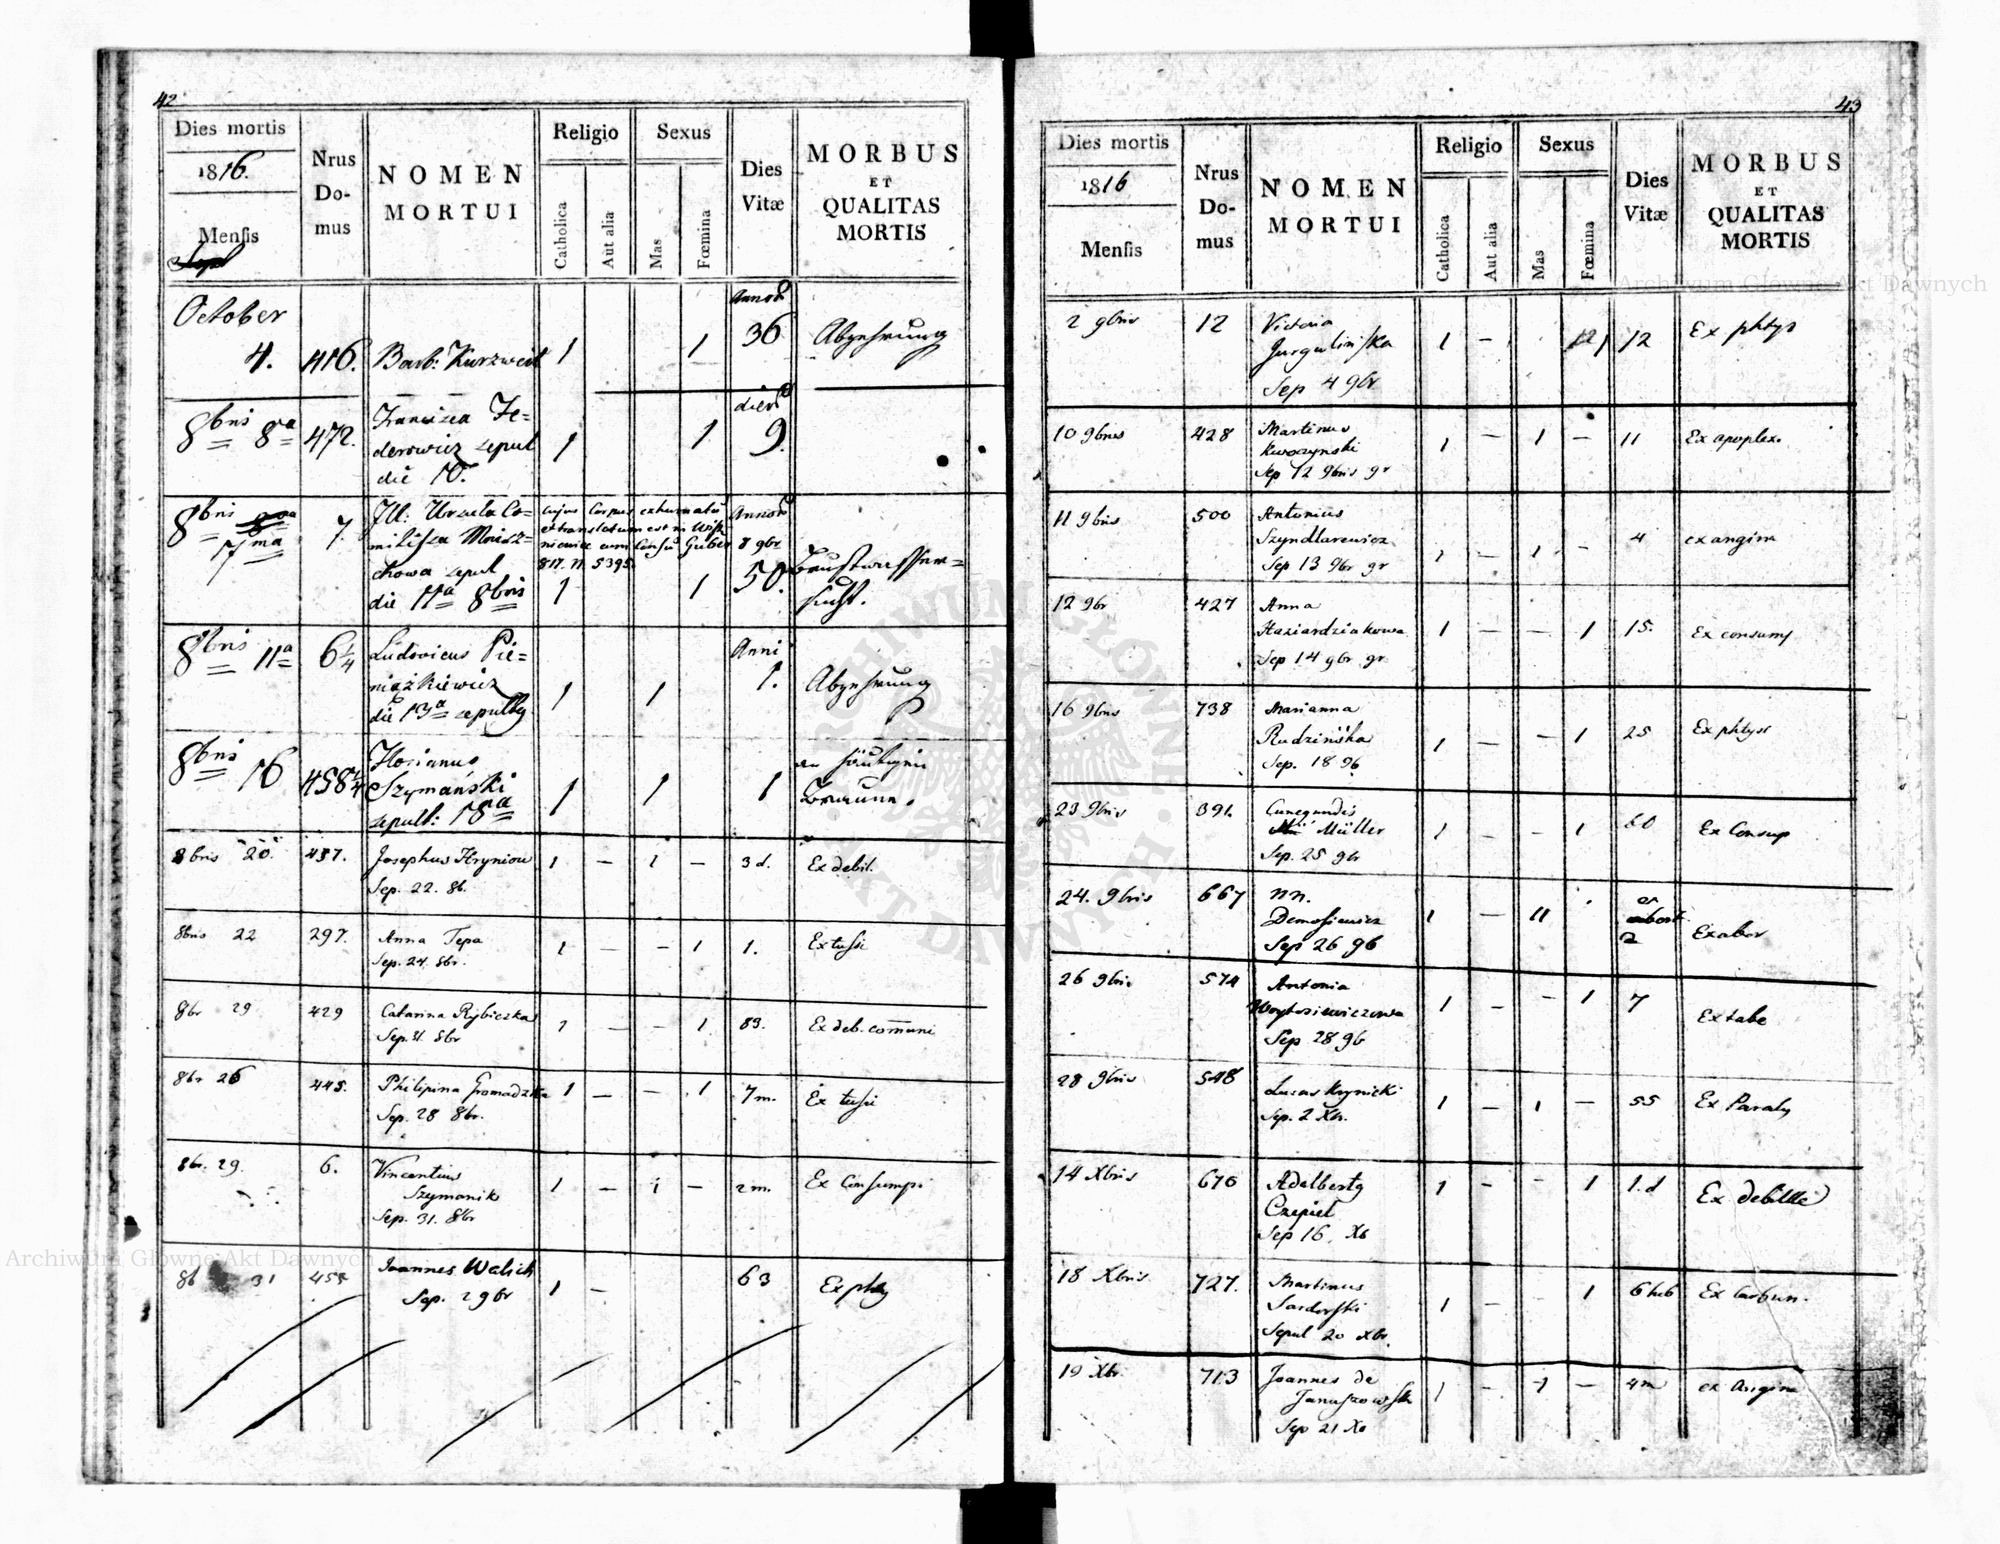 42
Dies mortis
1816.
Mensis
Nrus Do-mus
NOMEN MORTUI
Religio
Catholica
Aut alia
Sexus
Mas
Fœmina
Dies Vitæ
MORBUS ET QUALITAS MORTIS
October
4. 416. Barb: Kurzweil 1 1 Annor 36 Abzehrung
8bris 8a 472. Francisca Fe=
derowicz sepul 1 1 dier 9.
die 10.
8bris 17ma 7. Ill: Urzula Co=
mitissa Mnisz=
chowa sepul
die 11a 8bris
cujus Corpus exhumatu
et translatum est in Wisz
niewice cum Consu Guber
817. N. 5395.
1 1 Annor 8 gbr 50. Brustwasser=
sucht.
8bris 11a 6¼ Ludovicus Pie=
niążkiewicz
die 13a sepultg
1 1 Anni 1. Abzehrung
8bris 16 458¼ Florianus
Szymański
sepult: 18na
1 1 1 an häutigen
Braune.
8bris 20. 457. Josephus Hryniow 1 — 1 — 3 d. Ex debil.
Sep. 22. 8b.
8bris 22 297. Anna Tepa 1 — — 1 1. Ex tussi
Sep. 24. 8br.
8br 29 429 Catarina Rybiczka 1 — — 1 83. Ex deb. comuni
Sep. 31. 8br
8br 26 445. Philipina Gromadzka 1 — — 1 7 m. Ex tussi
Sep. 28 8br.
8br. 29. 6. Vincentius
Szymonik 1 — 1 — 2 m. Ex Consumpi
Sep. 31. 8br
8b 31 Joannes Walich 1 — 63
Sep. 2 9br
43
Dies mortis
1816
Mensis
Nrus Do-mus
NOMEN MORTUI
Religio
Catholica
Aut alia
Sexus
Mas
Fœmina
Dies Vitæ
MORBUS ET QUALITAS MORTIS
2 9bris 12 Victoria
Jurgulinska 1 — 12 Ex phtys
Sep 4 9br
10 9bris 428 Martinus 1 — 1 — 11 Ex apoplex.
Sep 12 9bris gr
11 9bris 500 Antonius
Szyndlarewicz 1 1 — 4 ex angina
Sep 13 9br gr
12 9br 427 Anna
Haziardziakowa 1 — — 1 15. Ex consump
Sep 14 9br gr
16 9bris 738 Marianna
Rudzińska 1 — — 1 25 Ex phtysi
Sep. 18 9b
23 9bris 391. Cunegundis
Müller 1 — — 1 60 Ex Consup
Sep. 25 9br
24. 9bris 667 nn.
Demosiewicz 1 — 11 ex abort 2 Ex abor
Sep 26 9b
26 9bris 574 Antonia
Woytosiewiczowa 1 — — 1 7 Ex tabe
Sep 28 9b
28 9bris 548 Lucas Krynicki 1 — 1 — 55 Ex Paraly
Sep. 2 Xbr.
14 Xbris 676 Adalbertg
Czepiel 1 — — 1 1. d Ex debilite
Sep 16. Xb
18 Xbris 727. Martinus 1 — — 1
Sepul 20 Xbr.
19 Xbr. 713 Joannes de
Januszowsk 1 — 1 — 4 m ex Angina
Sep 21 Xb
Archiwum Główne Akt Dawnych
Archiwum Główne Akt Dawnych
ARCHIWUM GŁÓWNE · AKT DAWNYCH ·